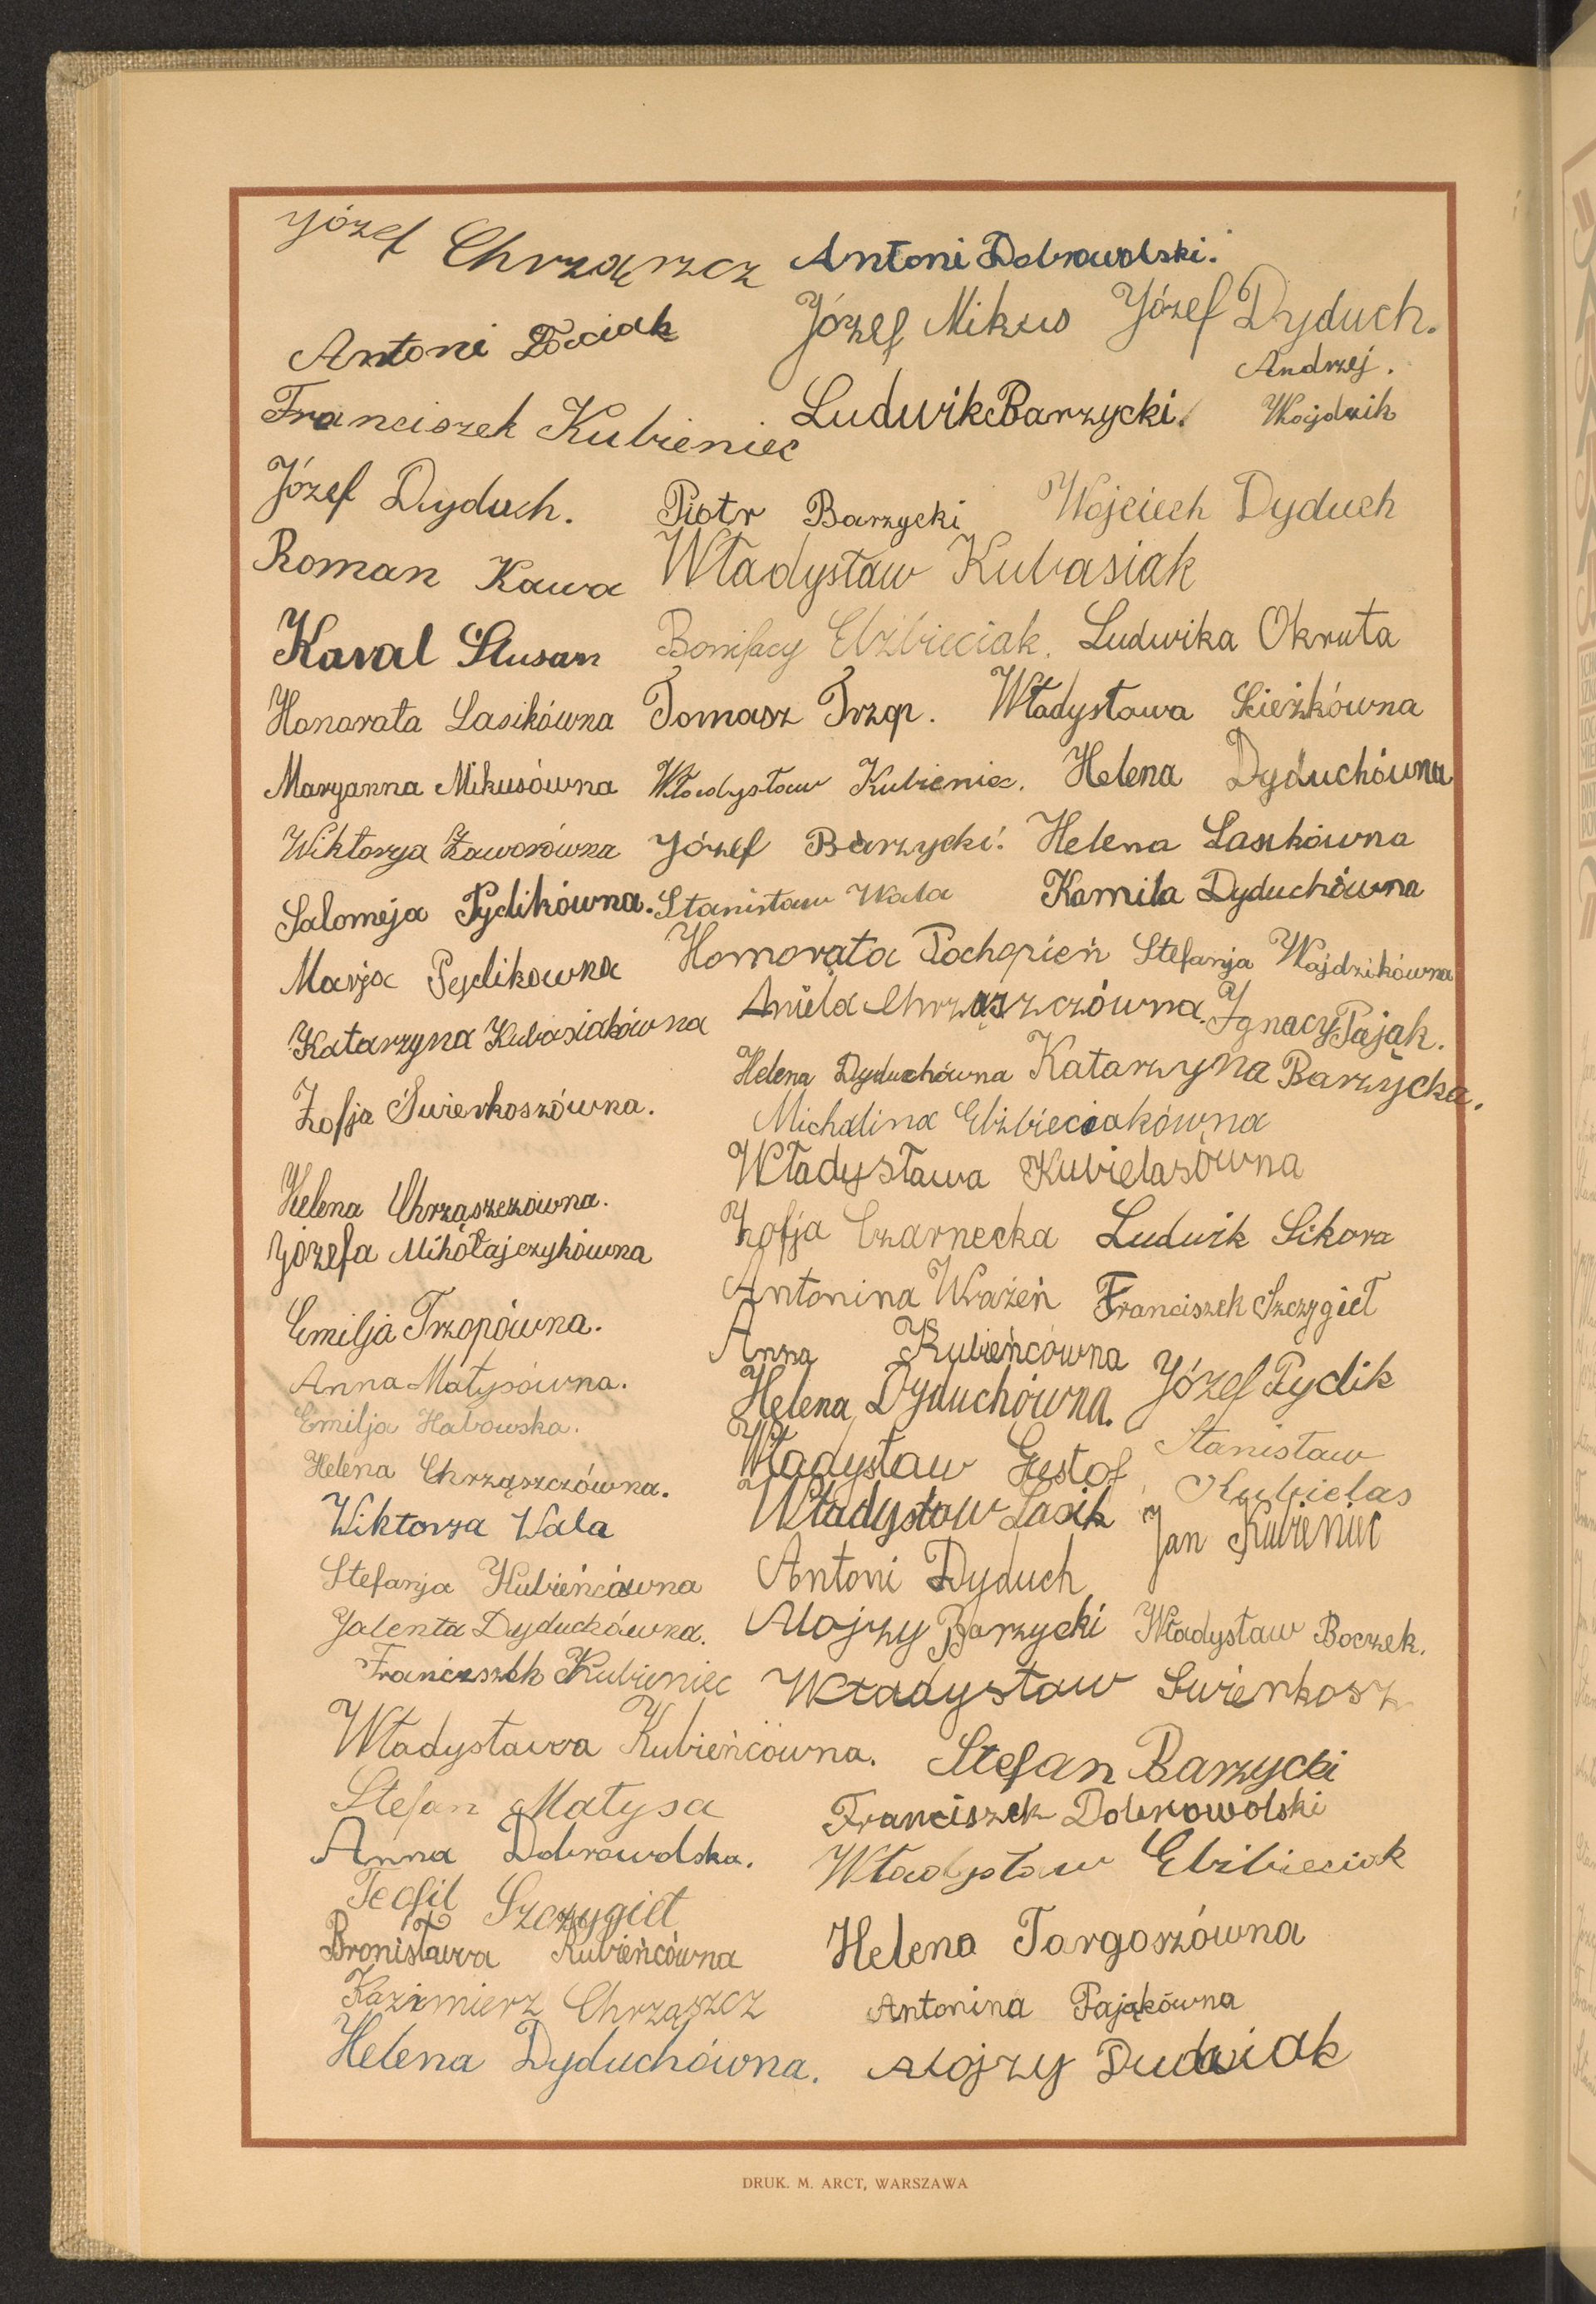 Józef Chrząszcz Antoni Dobrowolski.
Józef Mikus Józef Dyduch.
Antoni
Andrzej.
Franciszek Kubieniec Ludwik Barzycki. Wojdzik
Józef Dyduch. Piotr Barzycki Wojciech Dyduch
Roman Kawa Władysław Kubasiak
Karol Slusarz Bonifacy Elżbieciak. Ludwika Okruta
Honorata Lasikówna Tomasz Trzop. Władysława Scieżkówna
Maryanna Mikusówna Władysław Kubieniec. Helena Dyduchówna
Wiktorja Zaworówna Józef Barzycki. Helena Laszkówna
Salomeja Pydikówna. Stanisław Wala Kamila Dyduchówna
Marja Pydikowna Homorata Pochopień Stefanja Wajdzikówna
Katarzyna Kubasiakówna Aniela Chrząszczówna. Ignacy Pająk.
Helena Dyduchówna Katarzyna Barzycka.
Zofja Świerkoszówna. Michalina Elżbieciakówna
Władysława Kubielasówna
Helena Chrząszczówna. Zofja Czarnecka Ludwik Sikora
Józefa Mikołajczykówna
Antonina Wrażeń Franciszek Szczygieł
Emilja Trzopówna. Anna Kubieńcówna
Anna Matysówna. Helena Dyduchówna. Józef Pydik
Emilja Habowska. Władysław Stanisław
Helena Chrząszczówna. Kubielas
Wiktorja Wala Władysław Lasik Jan Kubieniec
Stefanja Kubieńcówna Antoni Dyduch
Jalenta Dyduchówna. Alojzy Barzycki Władysław Boczek.
Franciszek Kubieniec Władysław Swierkosz
Władysława Kubieńcówna. Stefan Barzycki
Stefan Matysa Franciszek Dobrowolski
Anna Dobrowolska. Władysław Elżbieciak
Teofil Szczygieł
Bronisława Kubieńcówna Helena Targoszówna
Kazimierz Chrząszcz Antonina Pająkówna
Helena Dyduchówna. Alojzy Dudziak
DRUK. M. ARCT, WARSZAWA